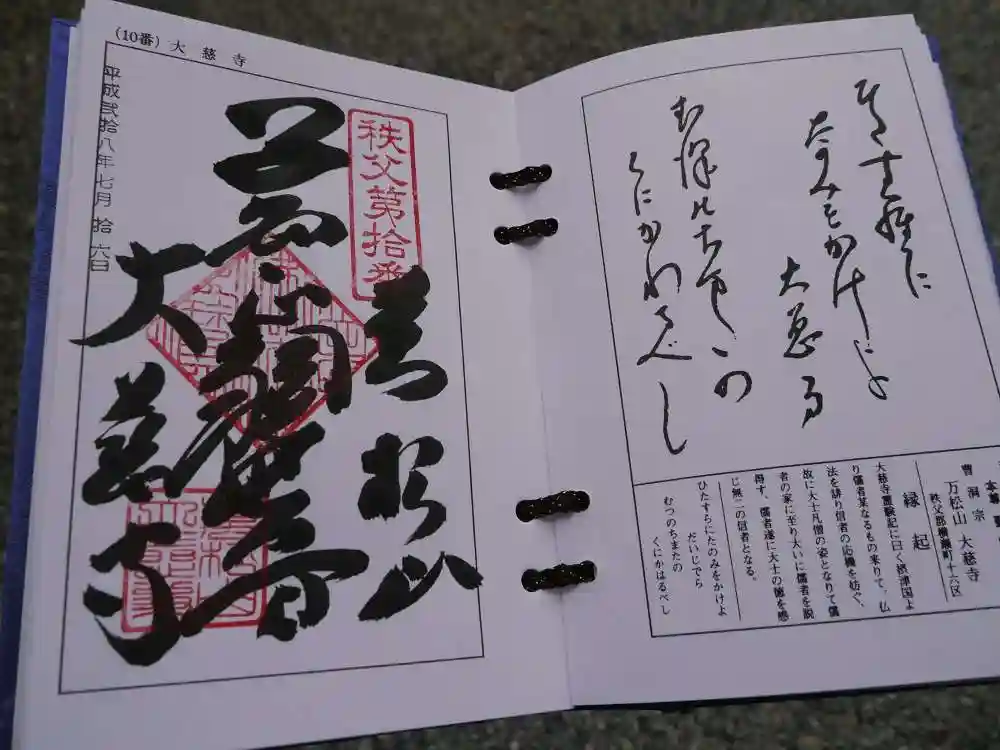 (10番) 大慈寺
平成弐拾八年七月拾六日
秩父第拾番
萬松山
大慈寺
ひたすらに
たのみをかけよ
大慈る
むつのちまたの
くにかわるべし
曹洞宗
万松山 大慈寺
秩父郡横瀬町十六区
縁起
大慈寺霊験記に曰く摂津国よ
り儒者某なるもの来りて、仏
法を誹り信者の応機を妨ぐ、
故に大士凡僧の姿となりて儒
者の家に至り大いに儒者を説
得す、儒者遂に大士の徳を感
じ無二の信者となる。
ひたすらにたのみをかけよ
だいじでら
むつのちまたの
くにかはるべし